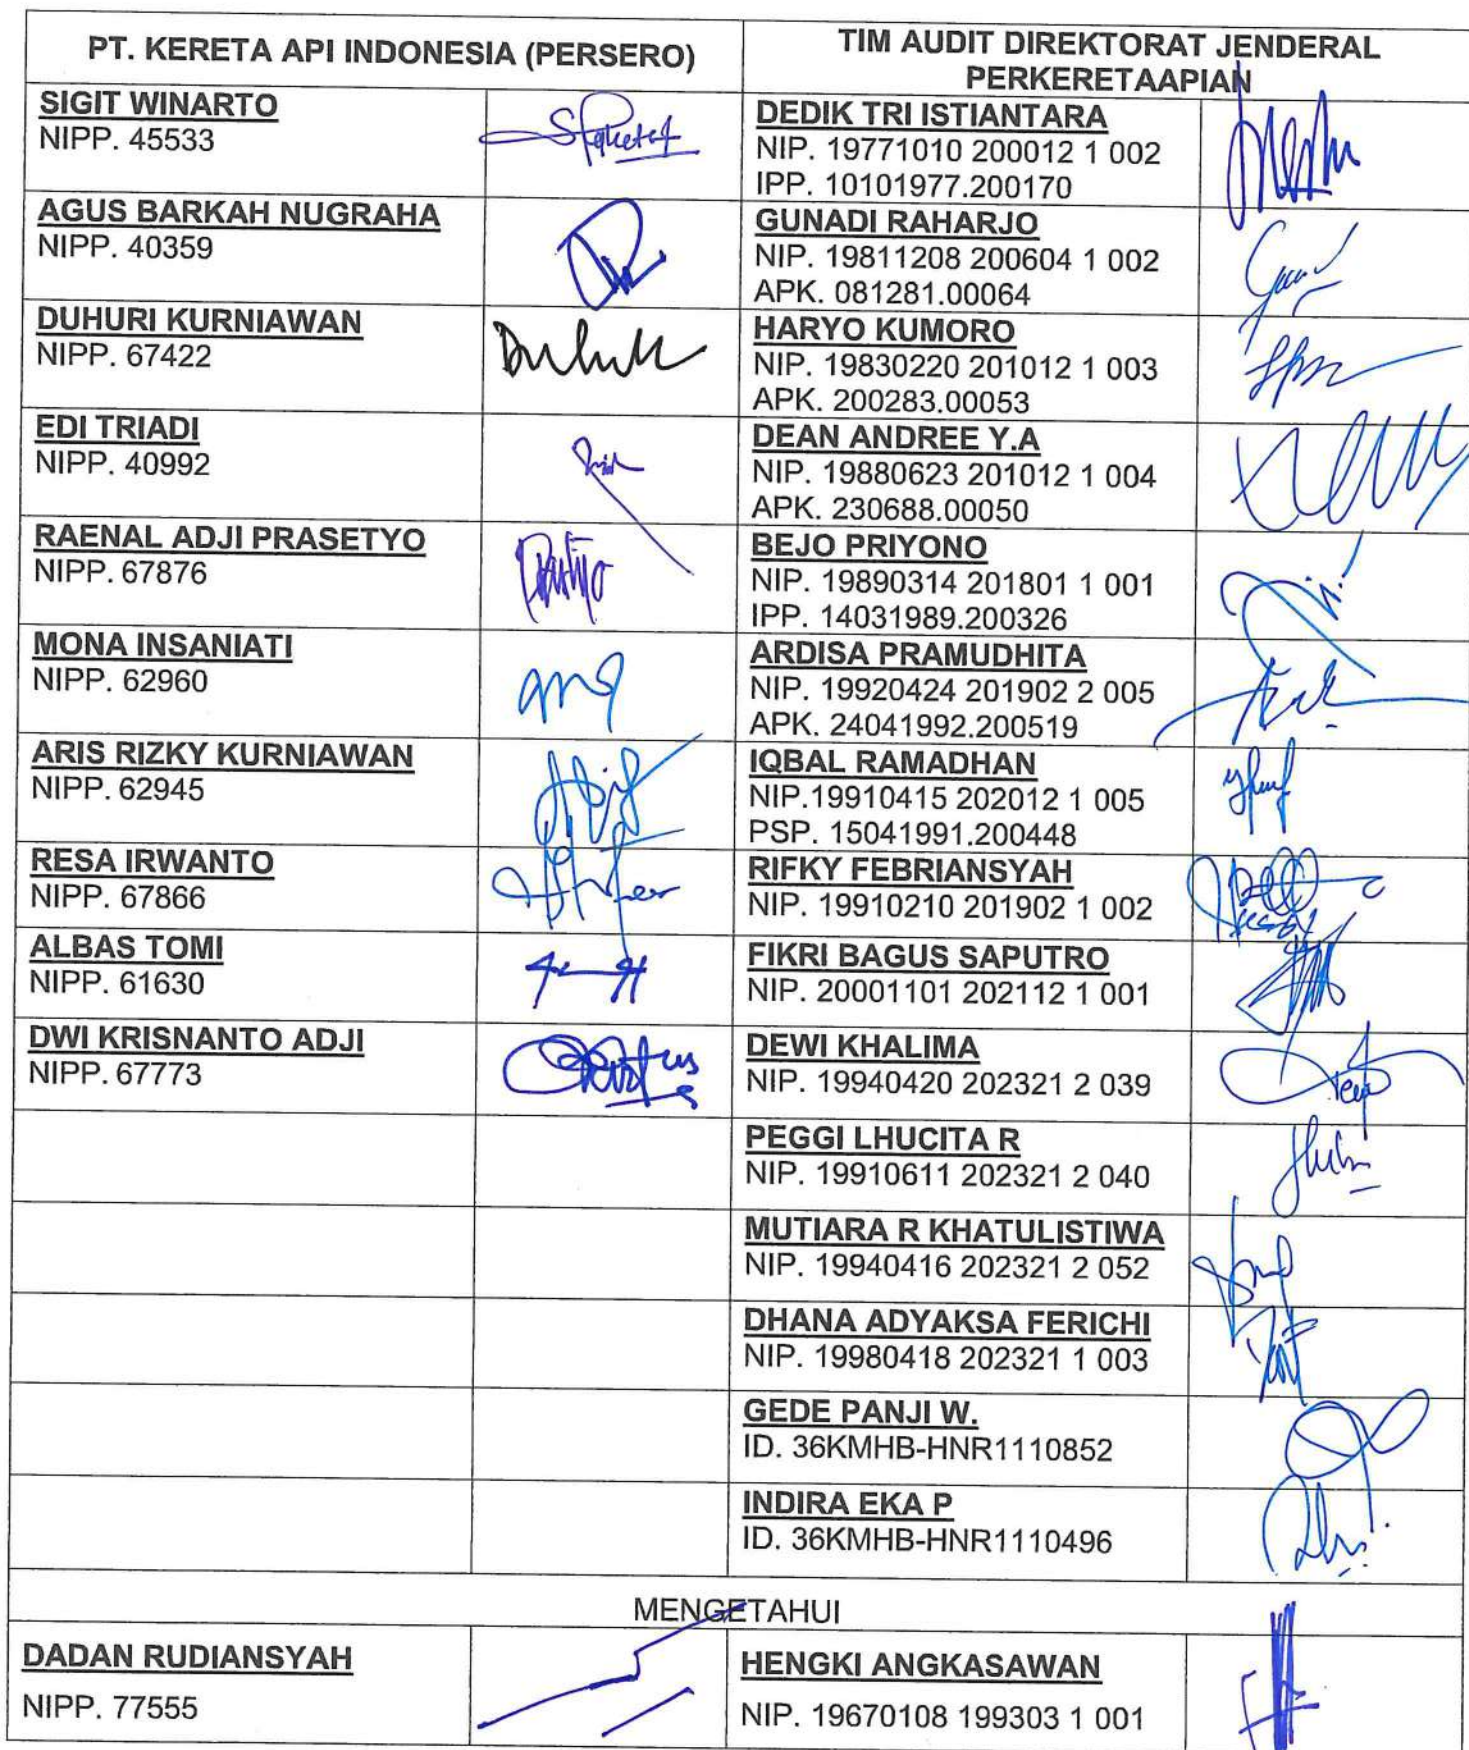 PT. KERETA API INDONESIA (PERSERO)
TIM AUDIT DIREKTORAT JENDERAL
PERKERETAAPIAN
SIGIT WINARTO
NIPP. 45533
DEDIK TRI ISTIANTARA
NIP. 19771010 200012 1 002
IPP. 10101977.200170
AGUS BARKAH NUGRAHA
NIPP. 40359
GUNADI RAHARJO
NIP. 19811208 200604 1 002
APK. 081281.00064
DUHURI KURNIAWAN
NIPP. 67422
HARYO KUMORO
NIP. 19830220 201012 1 003
APK. 200283.00053
EDI TRIADI
NIPP. 40992
DEAN ANDREE Y.A
NIP. 19880623 201012 1 004
APK. 230688.00050
RAENAL ADJI PRASETYO
NIPP. 67876
BEJO PRIYONO
NIP. 19890314 201801 1 001
IPP. 14031989.200326
MONA INSANIATI
NIPP. 62960
ARDISA PRAMUDHITA
NIP. 19920424 201902 2 005
APK. 24041992.200519
ARIS RIZKY KURNIAWAN
NIPP. 62945
IQBAL RAMADHAN
NIP.19910415 202012 1 005
PSP. 15041991.200448
RESA IRWANTO
NIPP. 67866
RIFKY FEBRIANSYAH
NIP. 19910210 201902 1 002
ALBAS TOMI
NIPP. 61630
FIKRI BAGUS SAPUTRO
NIP. 20001101 202112 1 001
DWI KRISNANTO ADJI
NIPP. 67773
DEWI KHALIMA
NIP. 19940420 202321 2 039
PEGGI LHUCITA R
NIP. 19910611 202321 2 040
MUTIARA R KHATULISTIWA
NIP. 19940416 202321 2 052
DHANA ADYAKSA FERICHI
NIP. 19980418 202321 1 003
GEDE PANJI W.
ID. 36KMHB-HNR1110852
INDIRA EKA P
ID. 36KMHB-HNR1110496
MENGETAHUI
DADAN RUDIANSYAH
NIPP. 77555
HENGKI ANGKASAWAN
NIP. 19670108 199303 1 001